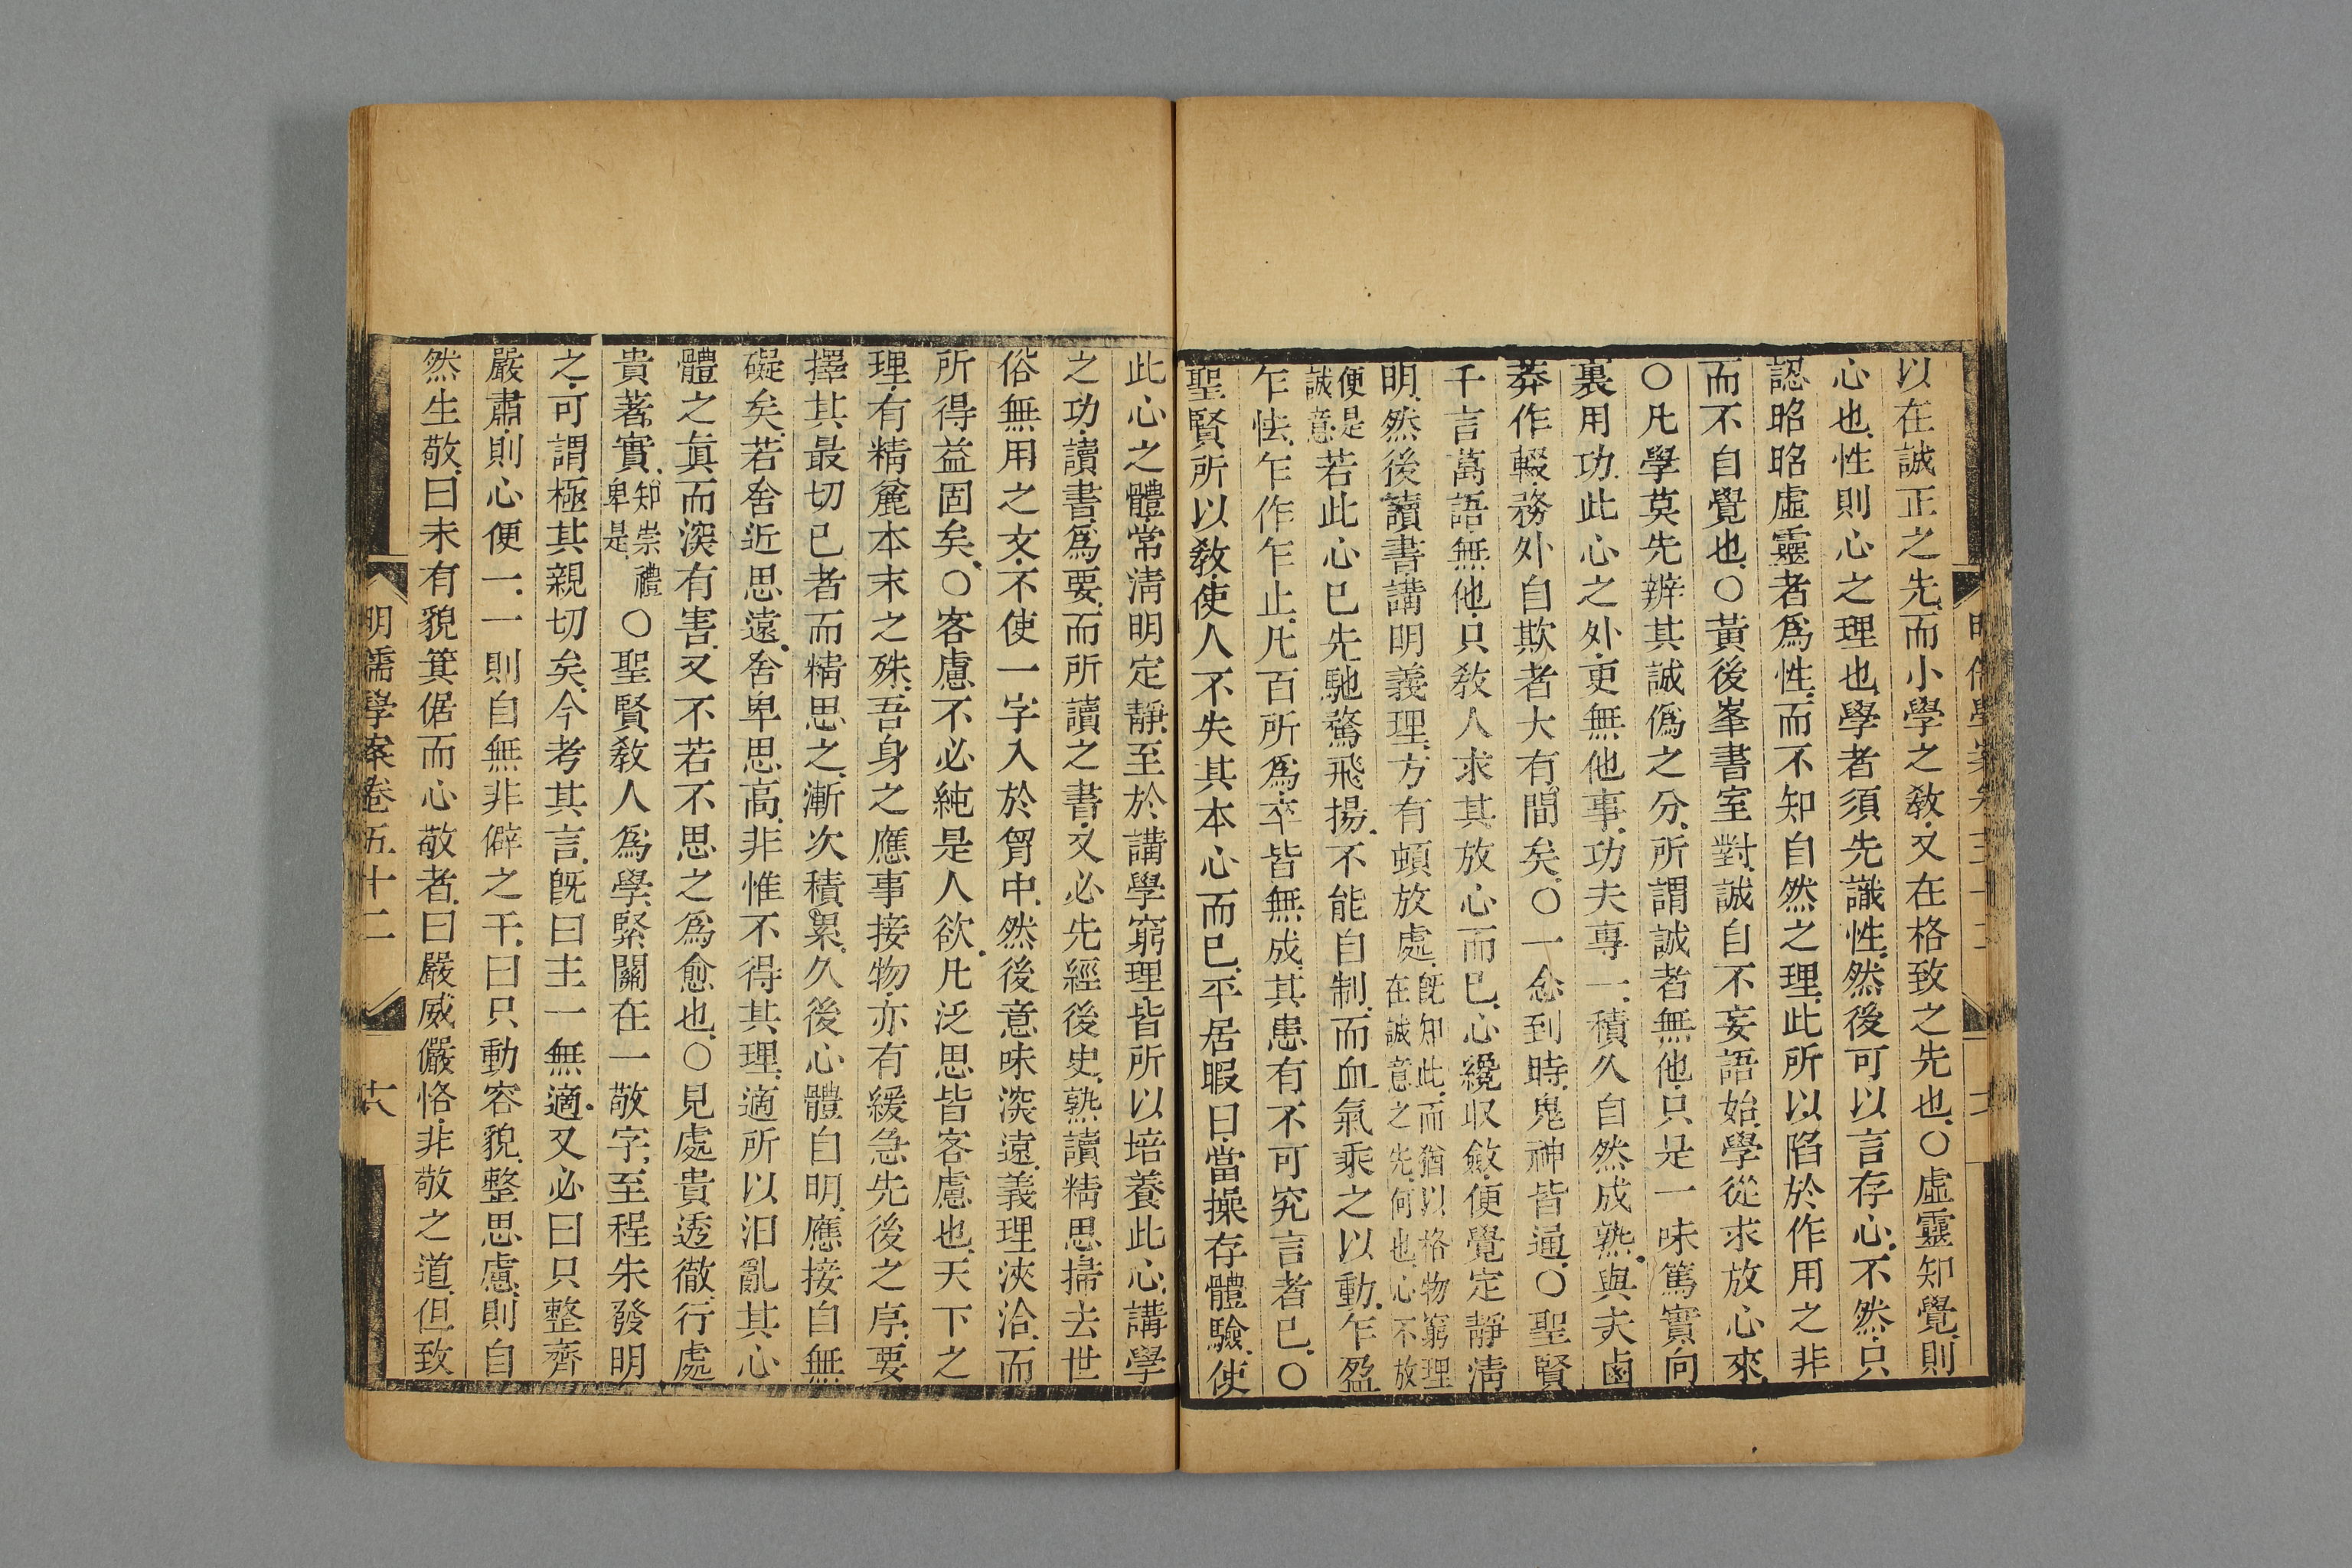 以在誠正之先而小學之敎又在格致之先也○虛靈知覺則
心也性則心之理也學者須先識性然後可以言存心不然只
認昭昭虛靈者爲性而不知自然之理此所以陷於作用之非
而不自覺也○黃後峯書室對誠自不妄語始學從求放心來
○凡學莫先辨其誠僞之分所謂誠者無他只是一味篤實向
裏用功此心之外更無他事功夫專一積久自然成熟與夫鹵
莽作輟務外自欺者大有間矣○一念到時鬼神皆通○聖賢
千言萬語無他只敎人求其放心而已心纔収斂便覺定靜淸
明然後讀書講明義理方有頓放處旣知此而猶以格物窮理在誠意之先何也心不放
便是誠意若此心已先馳騖飛揚不能自制而血氣乘之以動乍盈
乍怯乍作乍止凡百所爲卒皆無成其患有不可究言者已○
聖賢所以敎使人不失其本心而已平居暇日當操存體驗使
此心之體常淸明定靜至於講學窮理皆所以培養此心講學
之功讀書爲要而所讀之書又必先經後史熟讀精思掃去世
俗無用之文不使一字入於胷中然後意味深遠義理浹洽而
所得益固矣○客慮不必純是人欲凡泛思皆客慮也天下之
理有精麄本末之殊吾身之應事接物亦有緩急先後之序要
擇其最切已者而精思之漸次積累久後心體自明應接自無
礙矣若舍近思遠舍卑思高非惟不得其理適所以汨亂其心
體之眞而深有害又不若不思之爲愈也○見處貴透徹行處
貴著實知崇禮卑是○聖賢敎人爲學緊關在一敬字至程朱發明
之可謂極其親切矣今考其言旣曰主一無適又必曰只整齊
嚴肅則心便一一則自無非僻之干曰只動容貌整思慮則自
然生敬曰未有貌箕倨而心敬者曰嚴威儼恪非敬之道但致
明儒學案卷五十二
十六